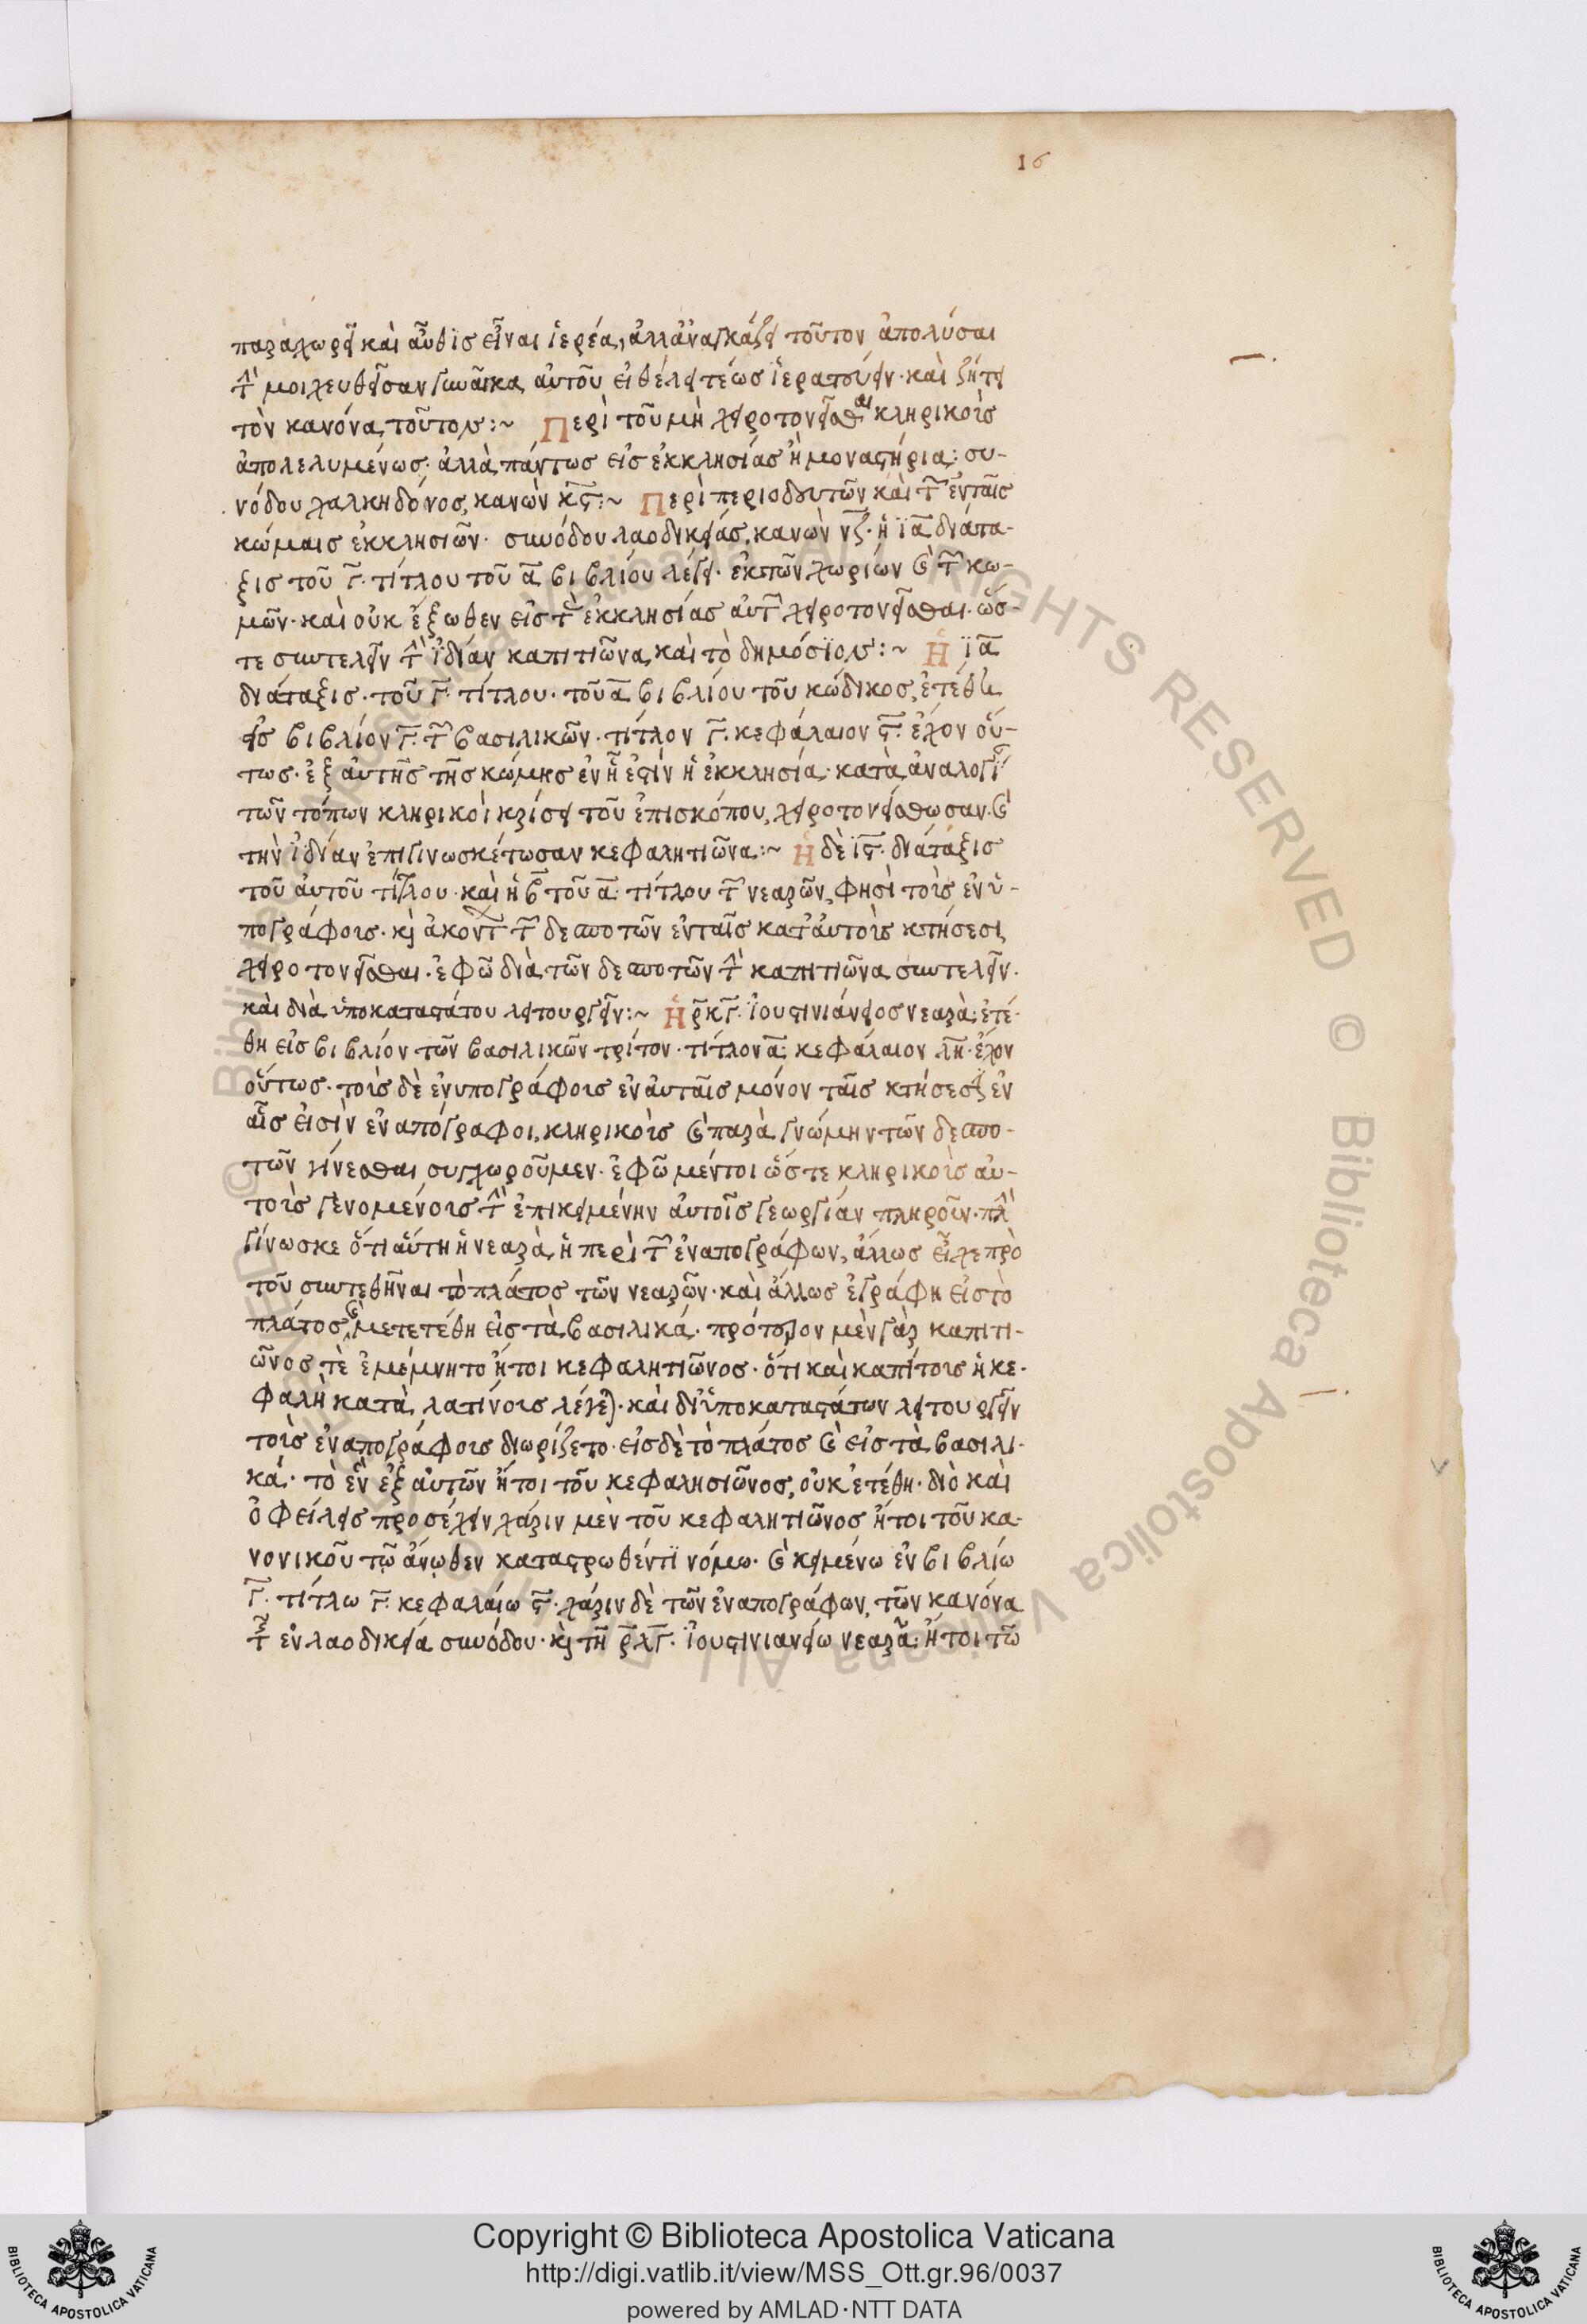 16
παραχωρεῖ καὶ αὖθϊς εἶναι ἱερέα, ἀλλἀναγκάζει τοῦτον ἀπολύσαι
τ̂ μοιχευθεῖσαν γυναῖκα αὐτοῦ εἰ θέλει τέως ἱερατεύειν· καὶ ζήτει
τὸν κανόνα τοῦτον:~ Περὶ τοῦ μὴ χειροτονεῖσθαι κληρικοὺς
ἀπολελυμένως· ἀλλὰ πάντως εἰς ἐκκλησίας ἢ μοναστήρια: συ-
νόδου χαλκηδόνος, κανὼν κ̅ς̅:~ Περὶ περιοδευτῶν καὶ τ͂ ἐνταῖς
κώμαις ἐκκλησιῶν· συνόδου λαοδικείας, κανὼν ν̅ζ̅· ἡ ϊ̅α̅ διάτα-
ξις τοῦ γ̅· τίτλου τοῦ α̅ βιβλίου λέγει· ἐκτῶν χωρίων καὶ τ͂ κω-
μῶν· καὶ οὐκ ἔξωθεν εἰς τ̀ ἐκκλησίας αὐτ͂ χειροτονεῖσθαι· ὥσ-
τε συντελεῖν τ̂ ἰδίαν καπιτιῶνα, καὶ τὸ δημόσϊον:~ Ἡ ϊ̅α̅
διάταξις· τοῦ γ̅· τίτλου· τοῦ α̅ βιβλίου τοῦ κώδικος, ἐτέθη
εἰς βιβλίον γ̅· τ͂ βασιλικῶν· τίτλον γ̅· κεφάλαιον ς̅· ἔχον οὕ-
τως· ἐξ αὐτῆς τῆς κώμης ἐν ἧ ἐστὶν ἡ ἐκκλησία· κατὰ ἀναλογί
τῶν τόπων κληρικοὶ κρίσει τοῦ ἐπισκόπου, χειροτονείσθωσαν· καὶ
τὴν ἰδίαν ἐπιγινωσκέτωσαν κεφαλητιῶνα:~ Ἡ δὲ ϊ̅ς̅· διάταξις
τοῦ αὐτοῦ τίτλου· καὶ ἡ β̅ τοῦ α̅· τίτλου τ͂ νεαρῶν, φησὶ τοὺς ἐνὑ-
πογράφους· κὶ ἀκοντ τ͂ δεσποτῶν ἐνταῖς κατ'αὐτοὺς κτήσεσι,
χειροτονεῖσθαι· ἐφῶ διὰ τῶν δεσποτῶν τ̂ καπιτιῶνα συντελεῖν·
καὶ διὰ ὑποκαταστάτου λειτουργεῖν:~ Ἡ ρ̅κ̅γ̅· ἰουστινιάνειος νεαρὰ: ἐτέ-
θη εἰς βιβλίον τῶν βασιλικῶν τρίτον· τίτλον α̅: κεφάλαιον λ̅η̅· ἔχον
οὕτως· τοὺς δὲ ἐνυπογράφους ἐν αὐταῖς μόνον ταῖς κτήσεσιν ἐν
αἷς εἰσὶν ἐναπόγραφοι, κληρικοὺς καὶ παρὰ γνώμην τῶν δεσπο-
τῶν γίνεσθαι συγχωροῦμεν· ἐφῶ μέντοι ὥστε κληρικοὺς αὐ-
τοὺς γενομένους τ̂ ἐπικειμένην αὐτοῖς γεωργίαν πληροῦν· πλ̂
γίνωσκε ὅτι αὕτη ἡ νεαρὰ, ἡ περὶ τ͂ ἐναπογράφων, ἄλλως εἶχε πρὸ
τοῦ συντεθῆναι τὸ πλάτος τῶν νεαρῶν· καὶ ἄλλως ἐγράφη εἰς τὸ
πλάτος, καὶ μετετέθη εἰς τὰ βασιλικά· πρότερον μὲν γὰρ καπιτι-
ῶνος τὲ ἐμέμνητο ἤτοι κεφαλητιῶνος· ὅτι καὶ καπίτους ἡ κε-
φαλὴ κατὰ λατίνους λέγε)· καὶ δι'ὑποκαταστάτων λειτουργεῖν
τοὺς ἐναπογράφους διωρίζετο· εἰς δὲ τὸ πλάτος καὶ εἰς τὰ βασιλι-
κά· τὸ ἓν ἐξ αὐτῶν ἤτοι τοῦ κεφαλησιῶνος, οὐκ ἐτέθη· διὸ καὶ
ὀφείλεις προσέχειν χάριν μὲν τοῦ κεφαλητιῶνος ἤτοι τοῦ κα-
νονικοῦ τῷ ἄνωθεν καταστρωθέντϊ νόμω· καὶ κειμένω ἐν βιβλίω
γ̅· τίτλω γ̅· κεφαλαίω ς̅· χάριν δὲ τῶν ἐναπογράφων, τῶν κανόνα
τ͂ ἐν λαοδικεία συνόδου· κὶ τῆ ρ̅λ̅γ̅· ἰουστινιανείω νεαρᾶ: ἤτοι τῶ
© Biblioteca Apostolica Vaticana ALL RIGHTS RESERVED © Biblioteca Apostolica Vaticana ALL RIGHTS RESERVED
Copyright © Biblioteca Apostolica Vaticana
http://digi.vatlib.it/view/MSS_Ott.gr.96/0037
powered by AMLAD·NTT DATA
BIBLIOTECA APOSTOLICA VATICANA
BIBLIOTECA APOSTOLICA VATICANA